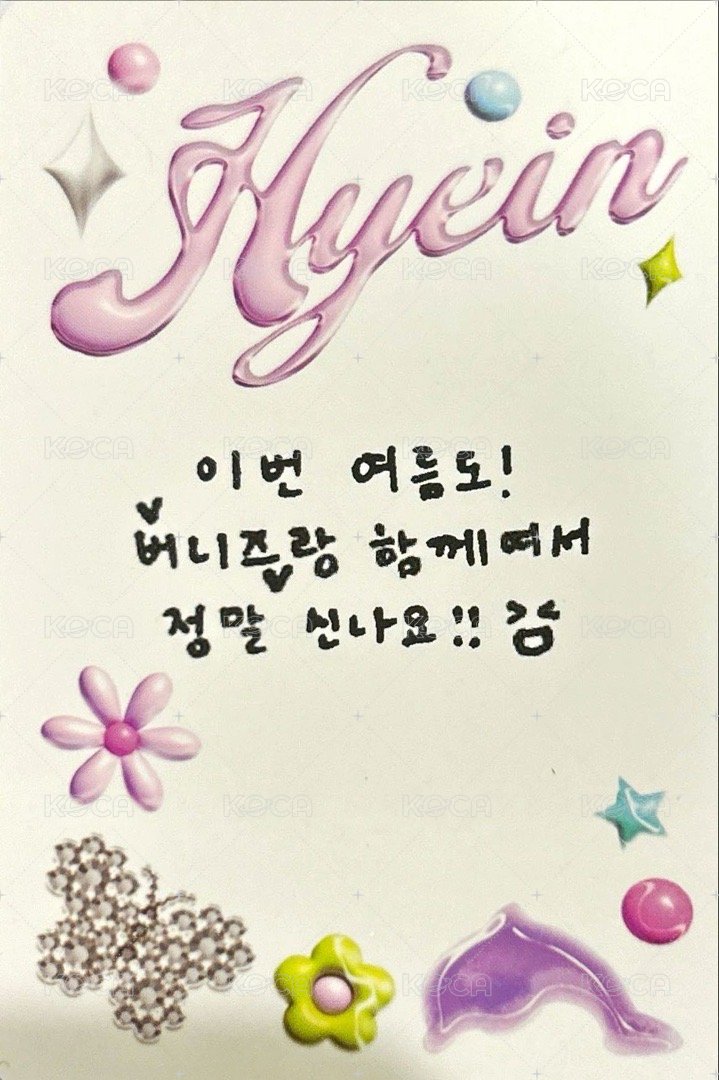 Hyein
이번 여름도!
버니즈랑 함께여서
정말 신나요!!
KOCA